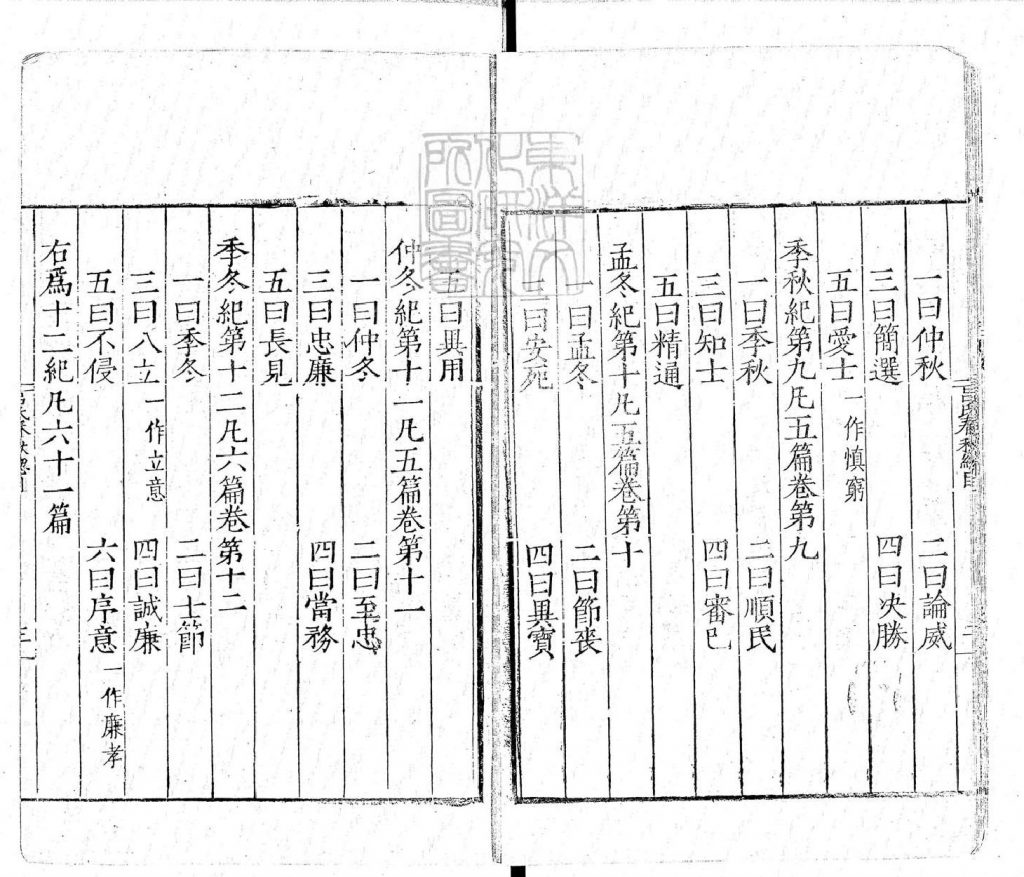 一曰仲秋　二曰論威
三曰簡選　四曰决勝
五曰愛士一作慎窮
季秋紀第九凡五篇卷第九
一曰季秋　二曰順民
三曰知士　四曰審己
五曰精通
孟冬紀第十凡五篇卷第十
一曰孟冬　二曰節喪
三曰安死　四曰異寶
五曰異用
仲冬紀第十一凡五篇卷第十一
一曰仲冬　二曰至忠
三曰忠廉　四曰當務
五曰長見
季冬紀第十二凡六篇卷第十二
一曰季冬　二曰士節
三曰八立一作立意　四曰誠廉
五曰不侵　六曰序意一作廉孝
右爲十二紀凡六十一篇
呂氏春秋總目
二
呂氏春秋總目
三
東洋文化研究所圖書